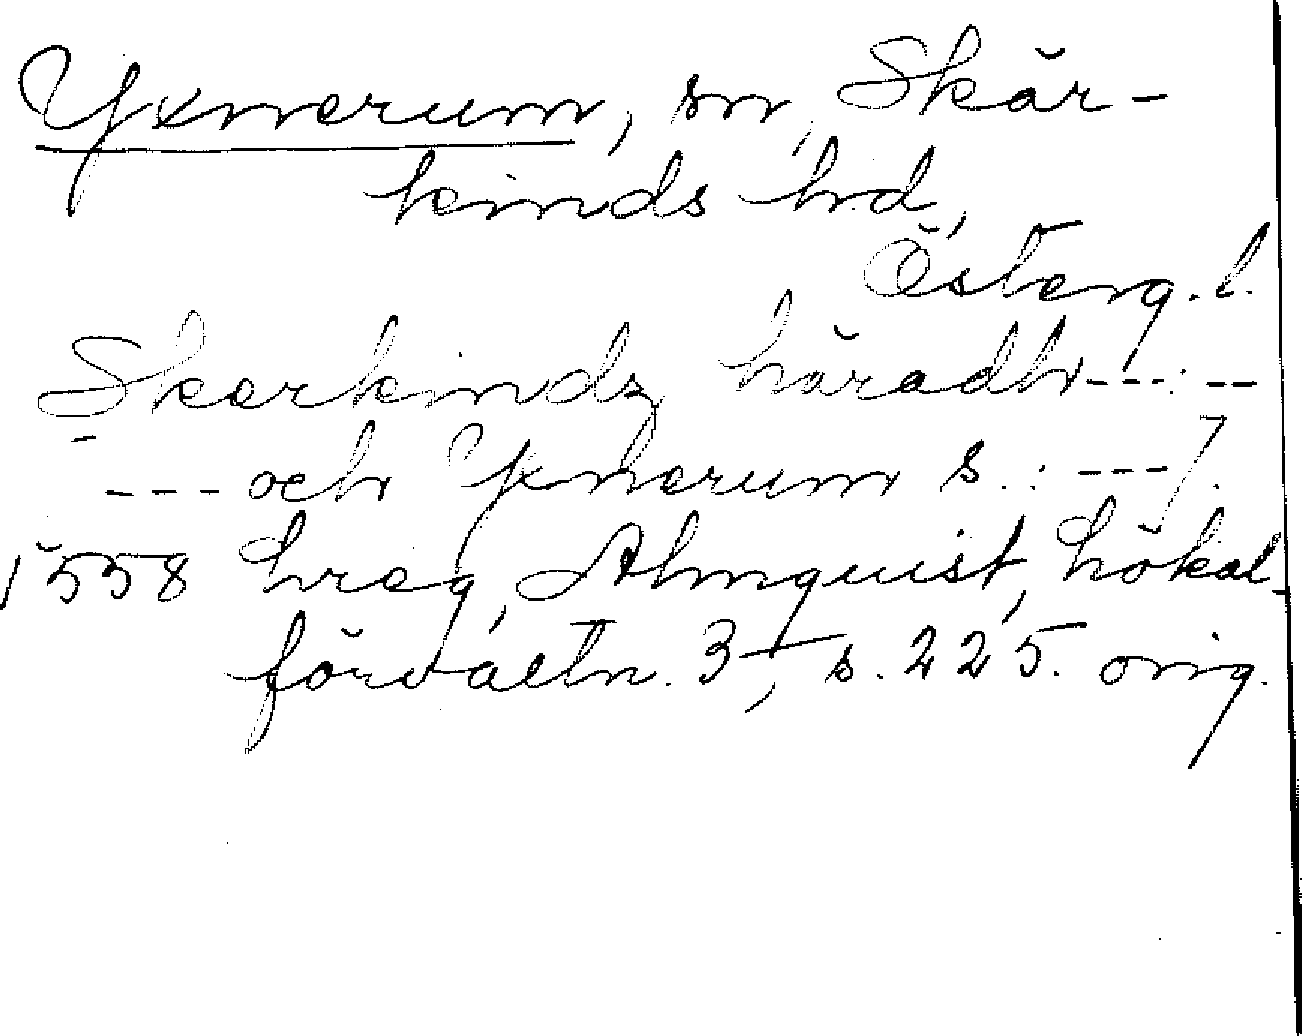 Yxnerum, sn, Skär-
kinds hd,
Österg. l.
Skerkindz häradh---:--
--- och Yxnerum s.: ---7.
1558 hreg, Almquist, Lokal-
förvaltn. 3, s. 225. orig.